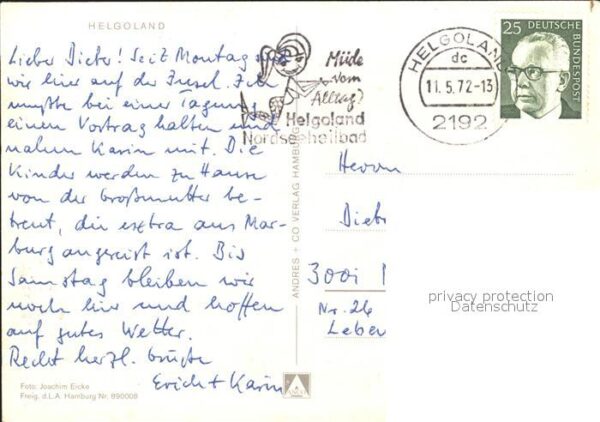 HELGOLAND
Lieber Dieter! Seit Montag sind
wir hier auf der Insel. Ich
mußte bei einer Tagung
einen Vortrag halten und
nahm Karin mit. Die
Kinder werden zu Hause
von der Großmutter be-
treut, die extra aus Mar-
burg angereist ist. Bis
Samstag bleiben wir
noch hier und hoffen
auf gutes Wetter.
Recht herzl. Grüße
Erich + Karin
Foto: Joachim Eicke
Freig. d.L.A. Hamburg Nr. 890008
ANDRES + CO VERLAG HAMBURG
Müde
vom
Alltag?
Helgoland
Nordseeheilbad
HELGOLAND
dc
11.5.72-13
2192
25 DEUTSCHE
BUNDESPOST
Herrn
Diet
3001
Nr. 26
Leben
privacy protection
Datenschutz